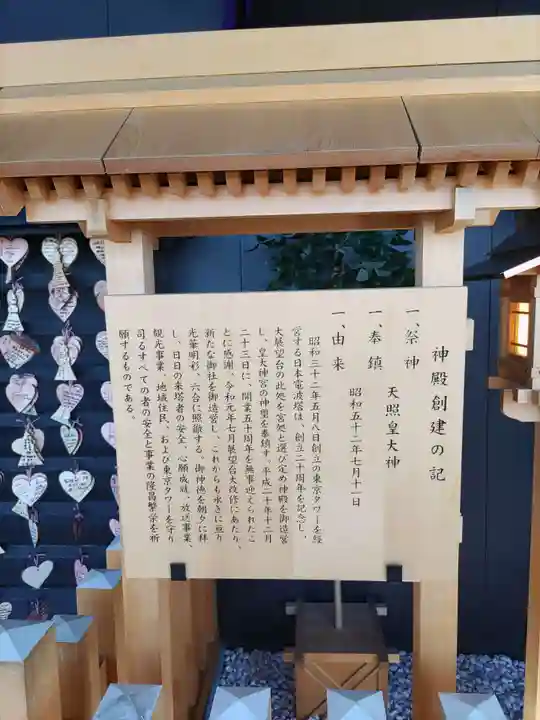 神殿創建の記
一、祭神　天照皇大神
一、奉鎮　昭和五十二年七月十一日
一、由来
昭和三十二年五月八日創立の東京タワーを経
営する日本電波塔は、創立二十周年を記念し、
大展望台の此処を宮処と選び定め神殿を御造営
し、皇大神宮の神璽を奉鎮す。平成二十年十二月
二十三日に、開業五十周年を無事迎えられたこ
とに感謝、令和元年七月展望台大改修にあたり、
新たな御社を御造営し、これからも永きに亘り
光華明彩、六合に照徹する、御神徳を朝夕に拝
し、日日の来塔者の安全、心願成就、放送事業、
観光事業、地域住民、および東京タワーを守り
司るすべての者の安全と事業の隆昌繁栄を祈
願するものである。